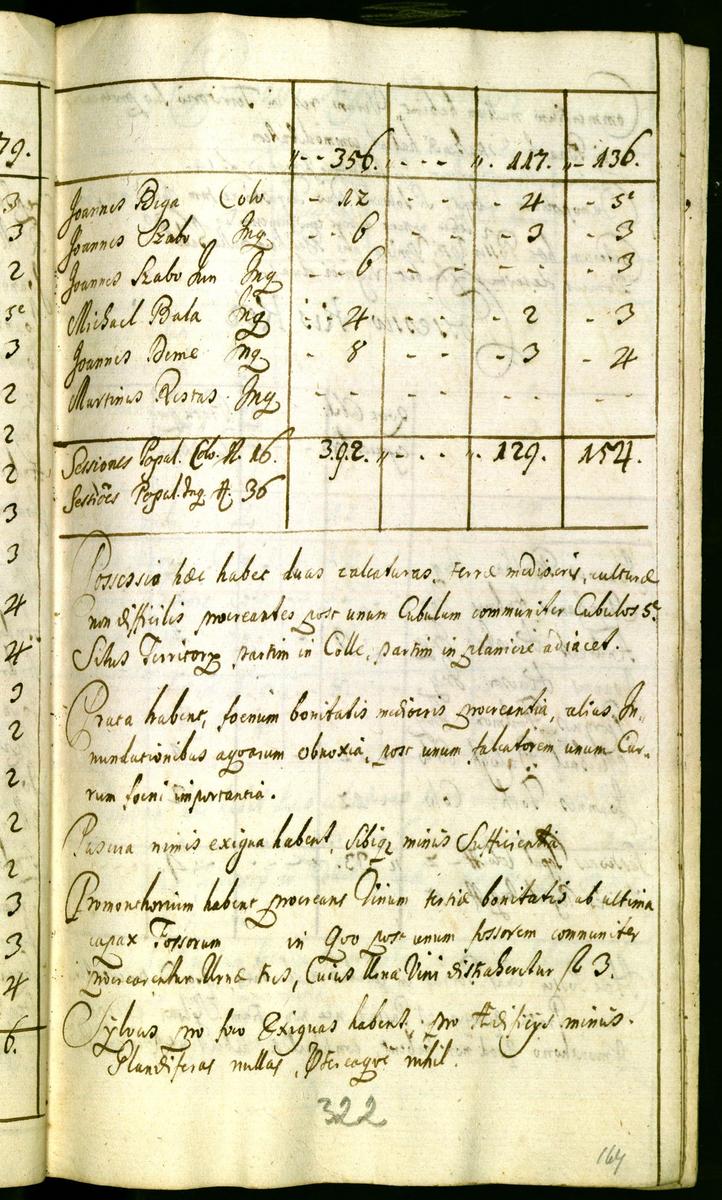 79.
" - - 356. " - - - ". 117. " - 136.
Joannes Biga Colo - 12 - - - - 4 - 5e
Joannes Szabo Inq - - 6 - - - - 3 - 3
Joannes Szabo Jun Inq - - 6 - - - - - - 3
Michael Bala Inq 4 - - - 2 - 3
Joannes Deme Inq - 8 - - - 3 - 4
Martinus Restas Inq - - - - - - -
Sessiones Popul. Colo. N. 16. 392. " - - - ". 129. 154.
Sessiões Popul. Inq. N. 36
Possessio hæc habet duas calcaturas, terræ mediocris, culturæ
non difficilis procreantes post unum Cubulum communiter Cubulos 5e.
Situs Territory partim in Colle, partim in planicie adiacet.
Prata habent, foenum bonitatis mediocris procreantia, alias In=
nundationibus aquarum obnoxia, post unum falcatorem unum Cur=
rum foeni importantia.
Pascua nimis exigua habent, sibiq minus Sufficientia
Promonthorium habent procreans Vinum tertiæ bonitatis ab ultima
capax Fossorum in Quo post unum fossorem communiter
procrearentur Urnæ tres, Cuius Urna Vini distraheretur fl 3.
Sylvas pro foco Exiguas habent, pro Ædificÿs minus.
Glandiferas nullas, Prætereaque nihil.
322
164
3
3
2
5e
3
2
2
2
3
3
4
4
3
2
2
2
2
3
3
4
6.